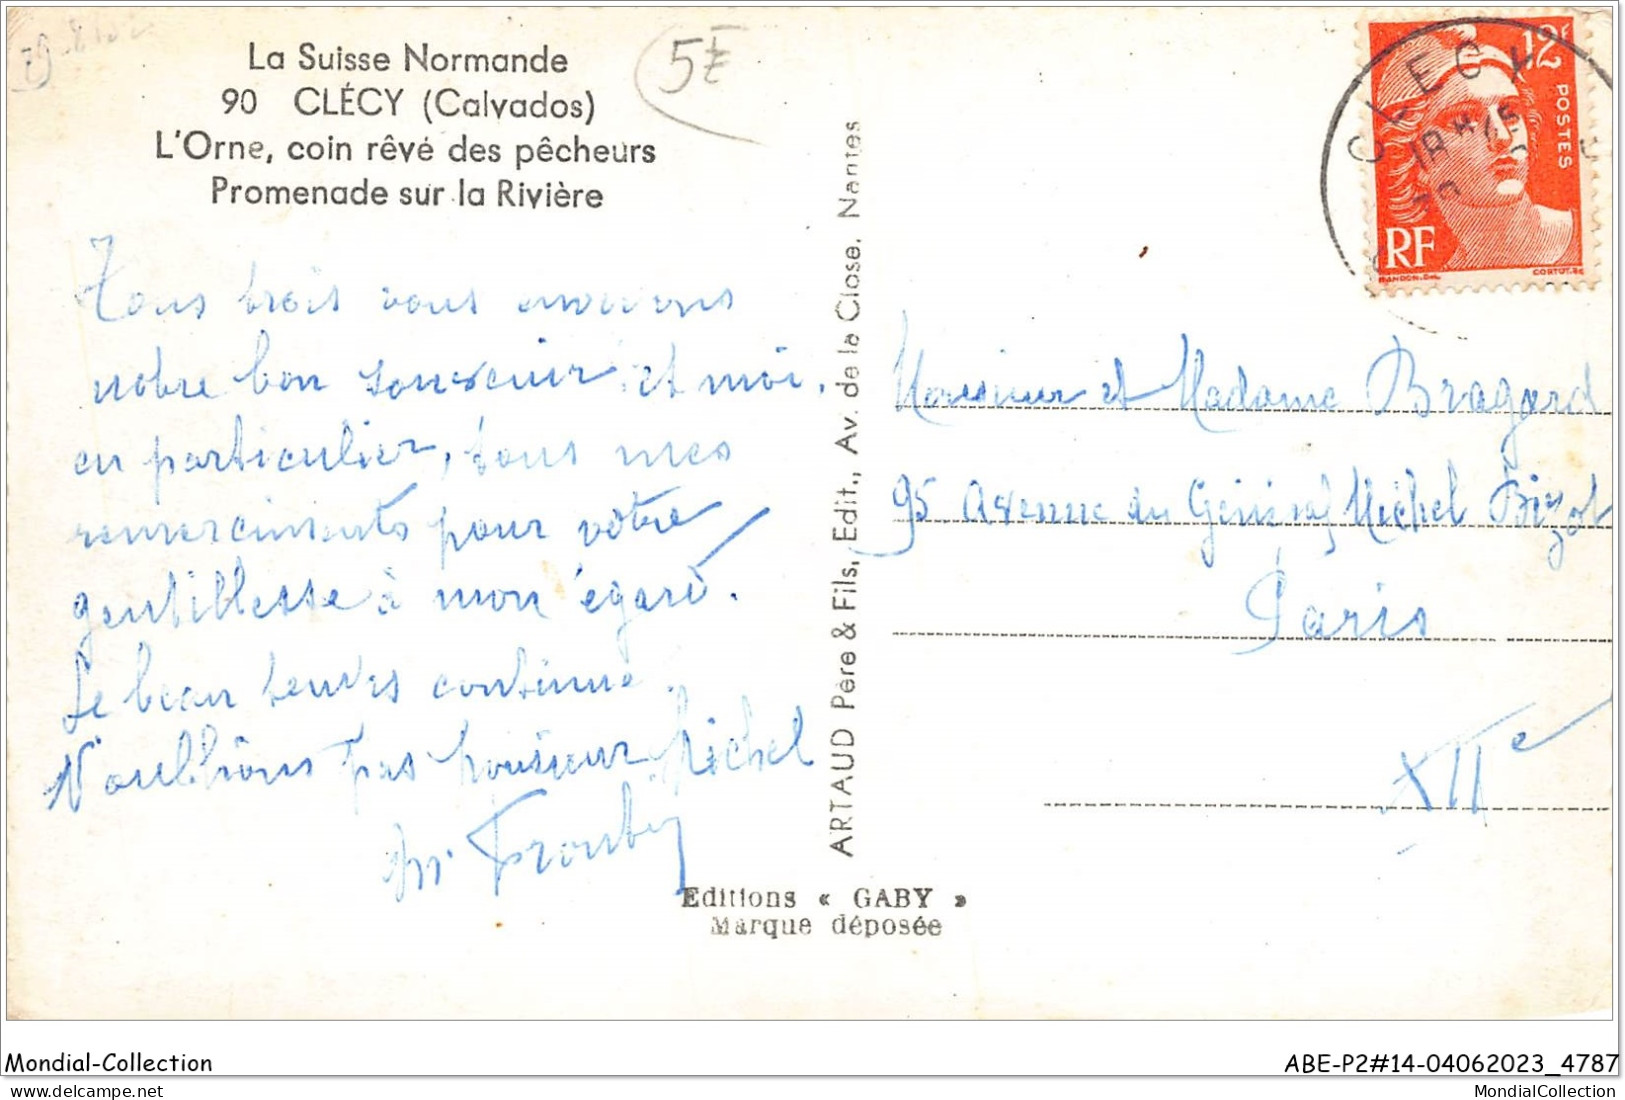 La Suisse Normande
90 CLÉCY (Calvados)
L'Orne, coin rêvé des pêcheurs
Promenade sur la Rivière
5E
Tous trois vous envoyons
notre bon souvenir et moi,
en particulier, tous mes
remerciments pour votre
gentillesse à mon égard.
Le beau temps continue.
N'oublions pas Monsieur Michel
ARTAUD Père & Fils, Edit., Av. de la Close, Nantes
Editions « GABY »
Marque déposée
CLECY
18H45
12F
POSTES
RF
Monsieur et Madame Bragard
95 Avenue du Général Michel Bizot
Paris
XIIe
Mondial-Collection
ABE-P2#14-04062023_4787
posted by www.delcampe.net
MondialCollection